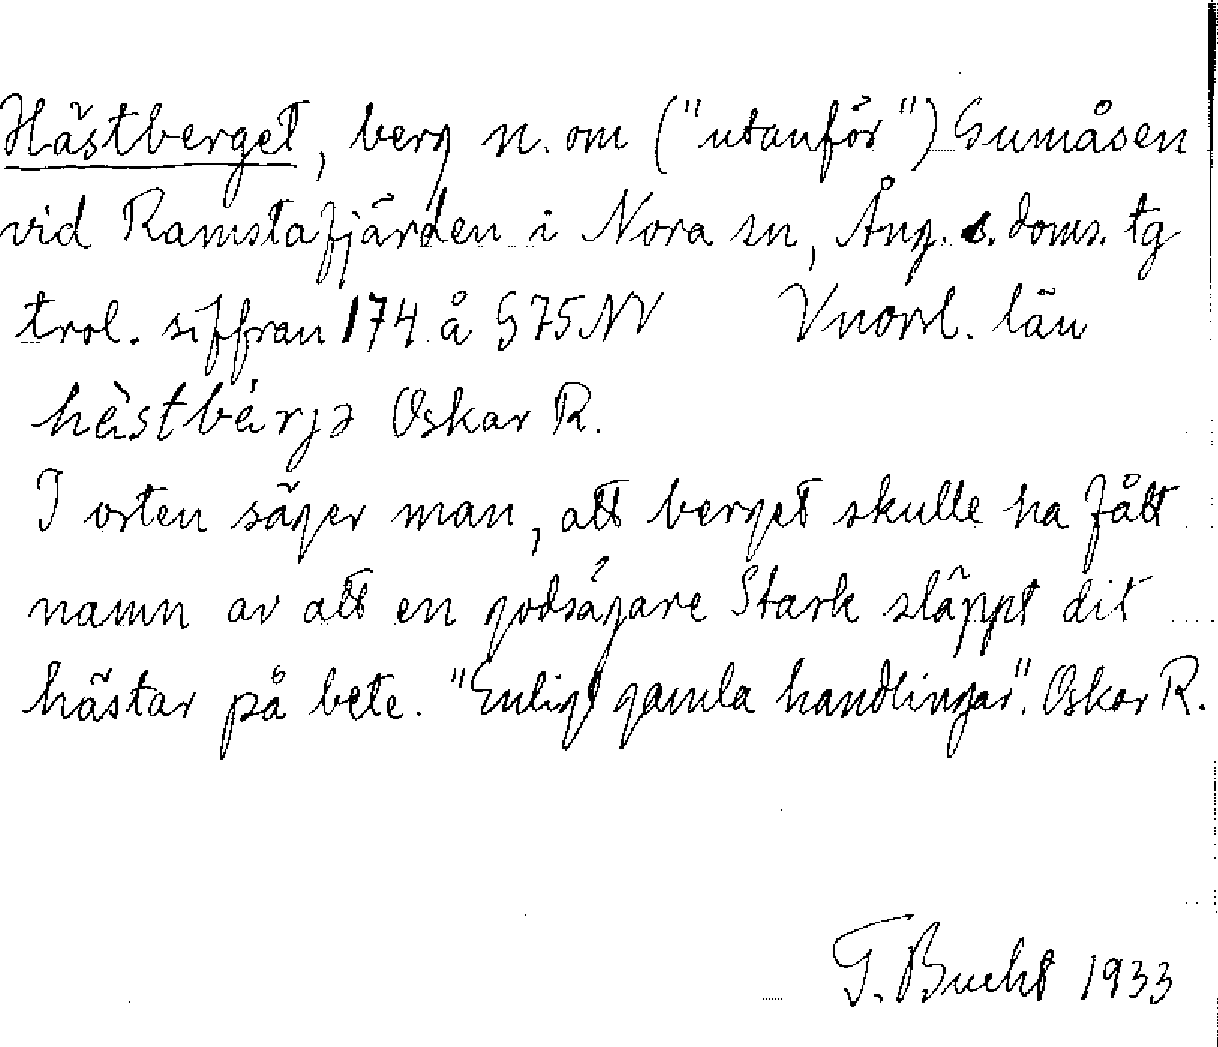 Hästberget, berg n. om ("utanför") Gumåsen
vid Ramstafjärden i Nora sn, Ång. s. doms. tg
trol. siffran 174 å G75NV Vnorrl. län
hèstbérjə Oskar R.
I orten säger man, att berget skulle ha fått
namn av att en godsägare Stark släppt dit
hästar på bete. "Enligt gamla handlingar". Oskar R.
T. Bucht 1933